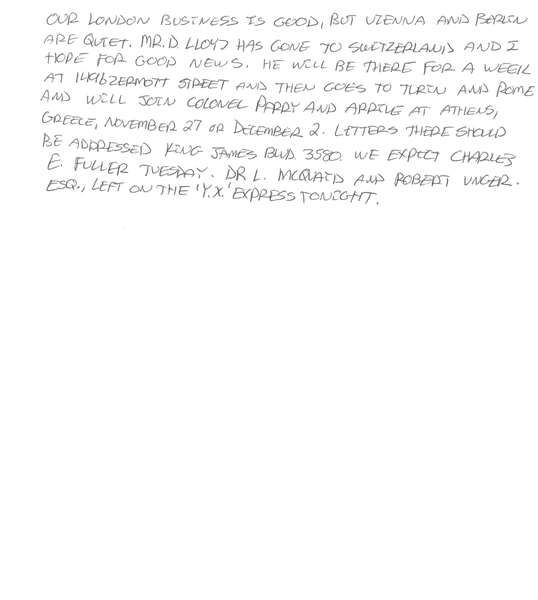 OUR LONDON BUSINESS IS GOOD, BUT VIENNA AND BERLIN
ARE QUIET. MR. D. LLOYD HAS GONE TO SWITZERLAND AND I
HOPE FOR GOOD NEWS. HE WILL BE THERE FOR A WEEK
AT 1496 ZERMOTT STREET AND THEN GOES TO TURIN AND ROME
AND WILL JOIN COLONEL PARRY AND ARRIVE AT ATHENS,
GREECE, NOVEMBER 27 OR DECEMBER 2. LETTERS THERE SHOULD
BE ADDRESSED KING JAMES BLVD. 3580. WE EXPECT CHARLES
E. FULLER TUESDAY. DR L. MCQUAID AND ROBERT UNGER.
ESQ., LEFT ON THE 'Y.X.' EXPRESS TONIGHT.